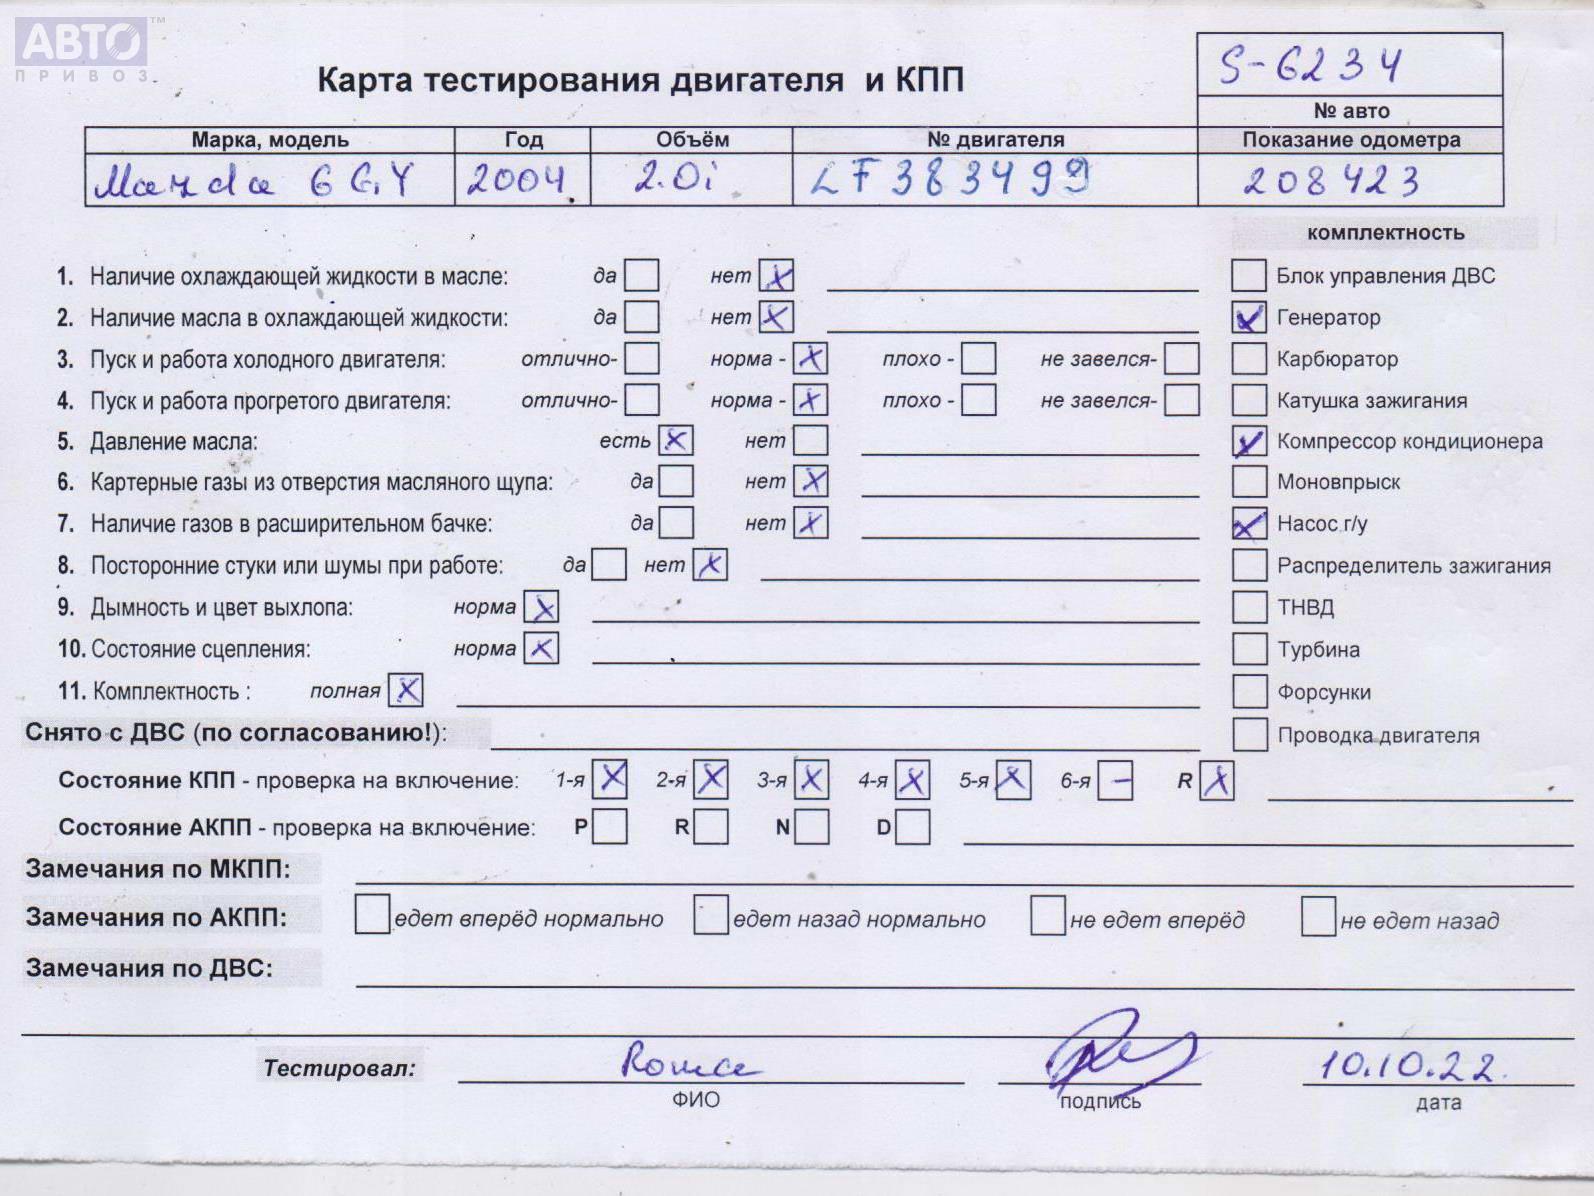 АВТО™
ПРИВОЗ
S-6234
Карта тестирования двигателя и КПП
№ авто
Марка, модель Год Объём № двигателя Показание одометра
Mazda 6 GY 2004 2.0i LF383499 208423
комплектность
1. Наличие охлаждающей жидкости в масле: да нет X Блок управления ДВС
2. Наличие масла в охлаждающей жидкости: да нет X X Генератор
3. Пуск и работа холодного двигателя: отлично- норма - X плохо - не завелся- Карбюратор
4. Пуск и работа прогретого двигателя: отлично- норма - X плохо - не завелся- Катушка зажигания
5. Давление масла: есть X нет X Компрессор кондиционера
6. Картерные газы из отверстия масляного щупа: да нет X Моновпрыск
7. Наличие газов в расширительном бачке: да нет X X Насос г/у
8. Посторонние стуки или шумы при работе: да нет X Распределитель зажигания
9. Дымность и цвет выхлопа: норма X ТНВД
10. Состояние сцепления: норма X Турбина
11. Комплектность : полная X Форсунки
Снято с ДВС (по согласованию!): Проводка двигателя
Состояние КПП - проверка на включение: 1-я X 2-я X 3-я X 4-я X 5-я X 6-я – R X
Состояние АКПП - проверка на включение: P R N D
Замечания по МКПП:
Замечания по АКПП: едет вперёд нормально едет назад нормально не едет вперёд не едет назад
Замечания по ДВС:
Тестировал: Рома 10.10.22.
ФИО подпись дата